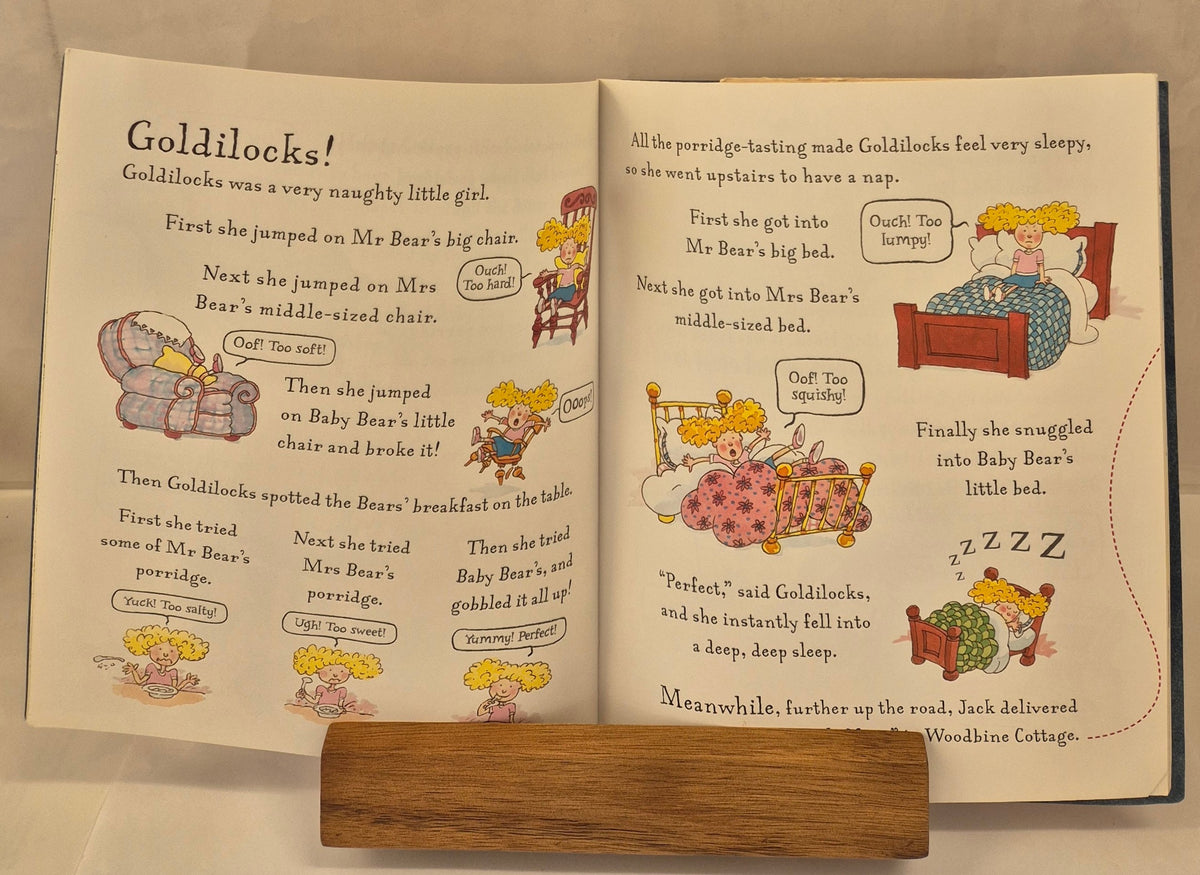 Goldilocks!
Goldilocks was a very naughty little girl.
First she jumped on Mr Bear's big chair.
Ouch!
Too hard!
Next she jumped on Mrs
Bear's middle-sized chair.
Oof! Too soft!
Then she jumped
on Baby Bear's little
chair and broke it!
Ooops!
Then Goldilocks spotted the Bears' breakfast on the table.
First she tried
some of Mr Bear's
porridge.
Yuck! Too salty!
Next she tried
Mrs Bear's
porridge.
Ugh! Too sweet!
Then she tried
Baby Bear's, and
gobbled it all up!
Yummy! Perfect!
All the porridge-tasting made Goldilocks feel very sleepy,
so she went upstairs to have a nap.
First she got into
Mr Bear's big bed.
Ouch! Too
lumpy!
Next she got into Mrs Bear's
middle-sized bed.
Oof! Too
squishy!
Finally she snuggled
into Baby Bear's
little bed.
z z z z z z
"Perfect," said Goldilocks,
and she instantly fell into
a deep, deep sleep.
Meanwhile, further up the road, Jack delivered
Woodbine Cottage.